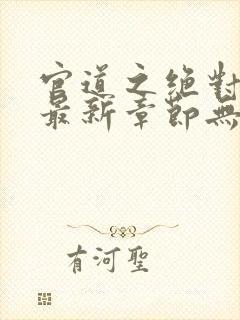 官道之绝對
最新章節無
有河聖